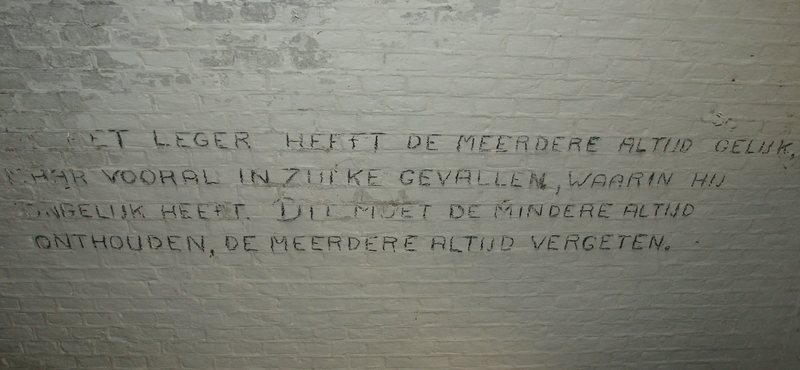 HET LEGER HEEFT DE MEERDERE ALTIJD GELIJK,
MAAR VOORAL IN ZULKE GEVALLEN, WAARIN HIJ
ONGELIJK HEEFT. DIT MOET DE MINDERE ALTIJD
ONTHOUDEN, DE MEERDERE ALTIJD VERGETEN.